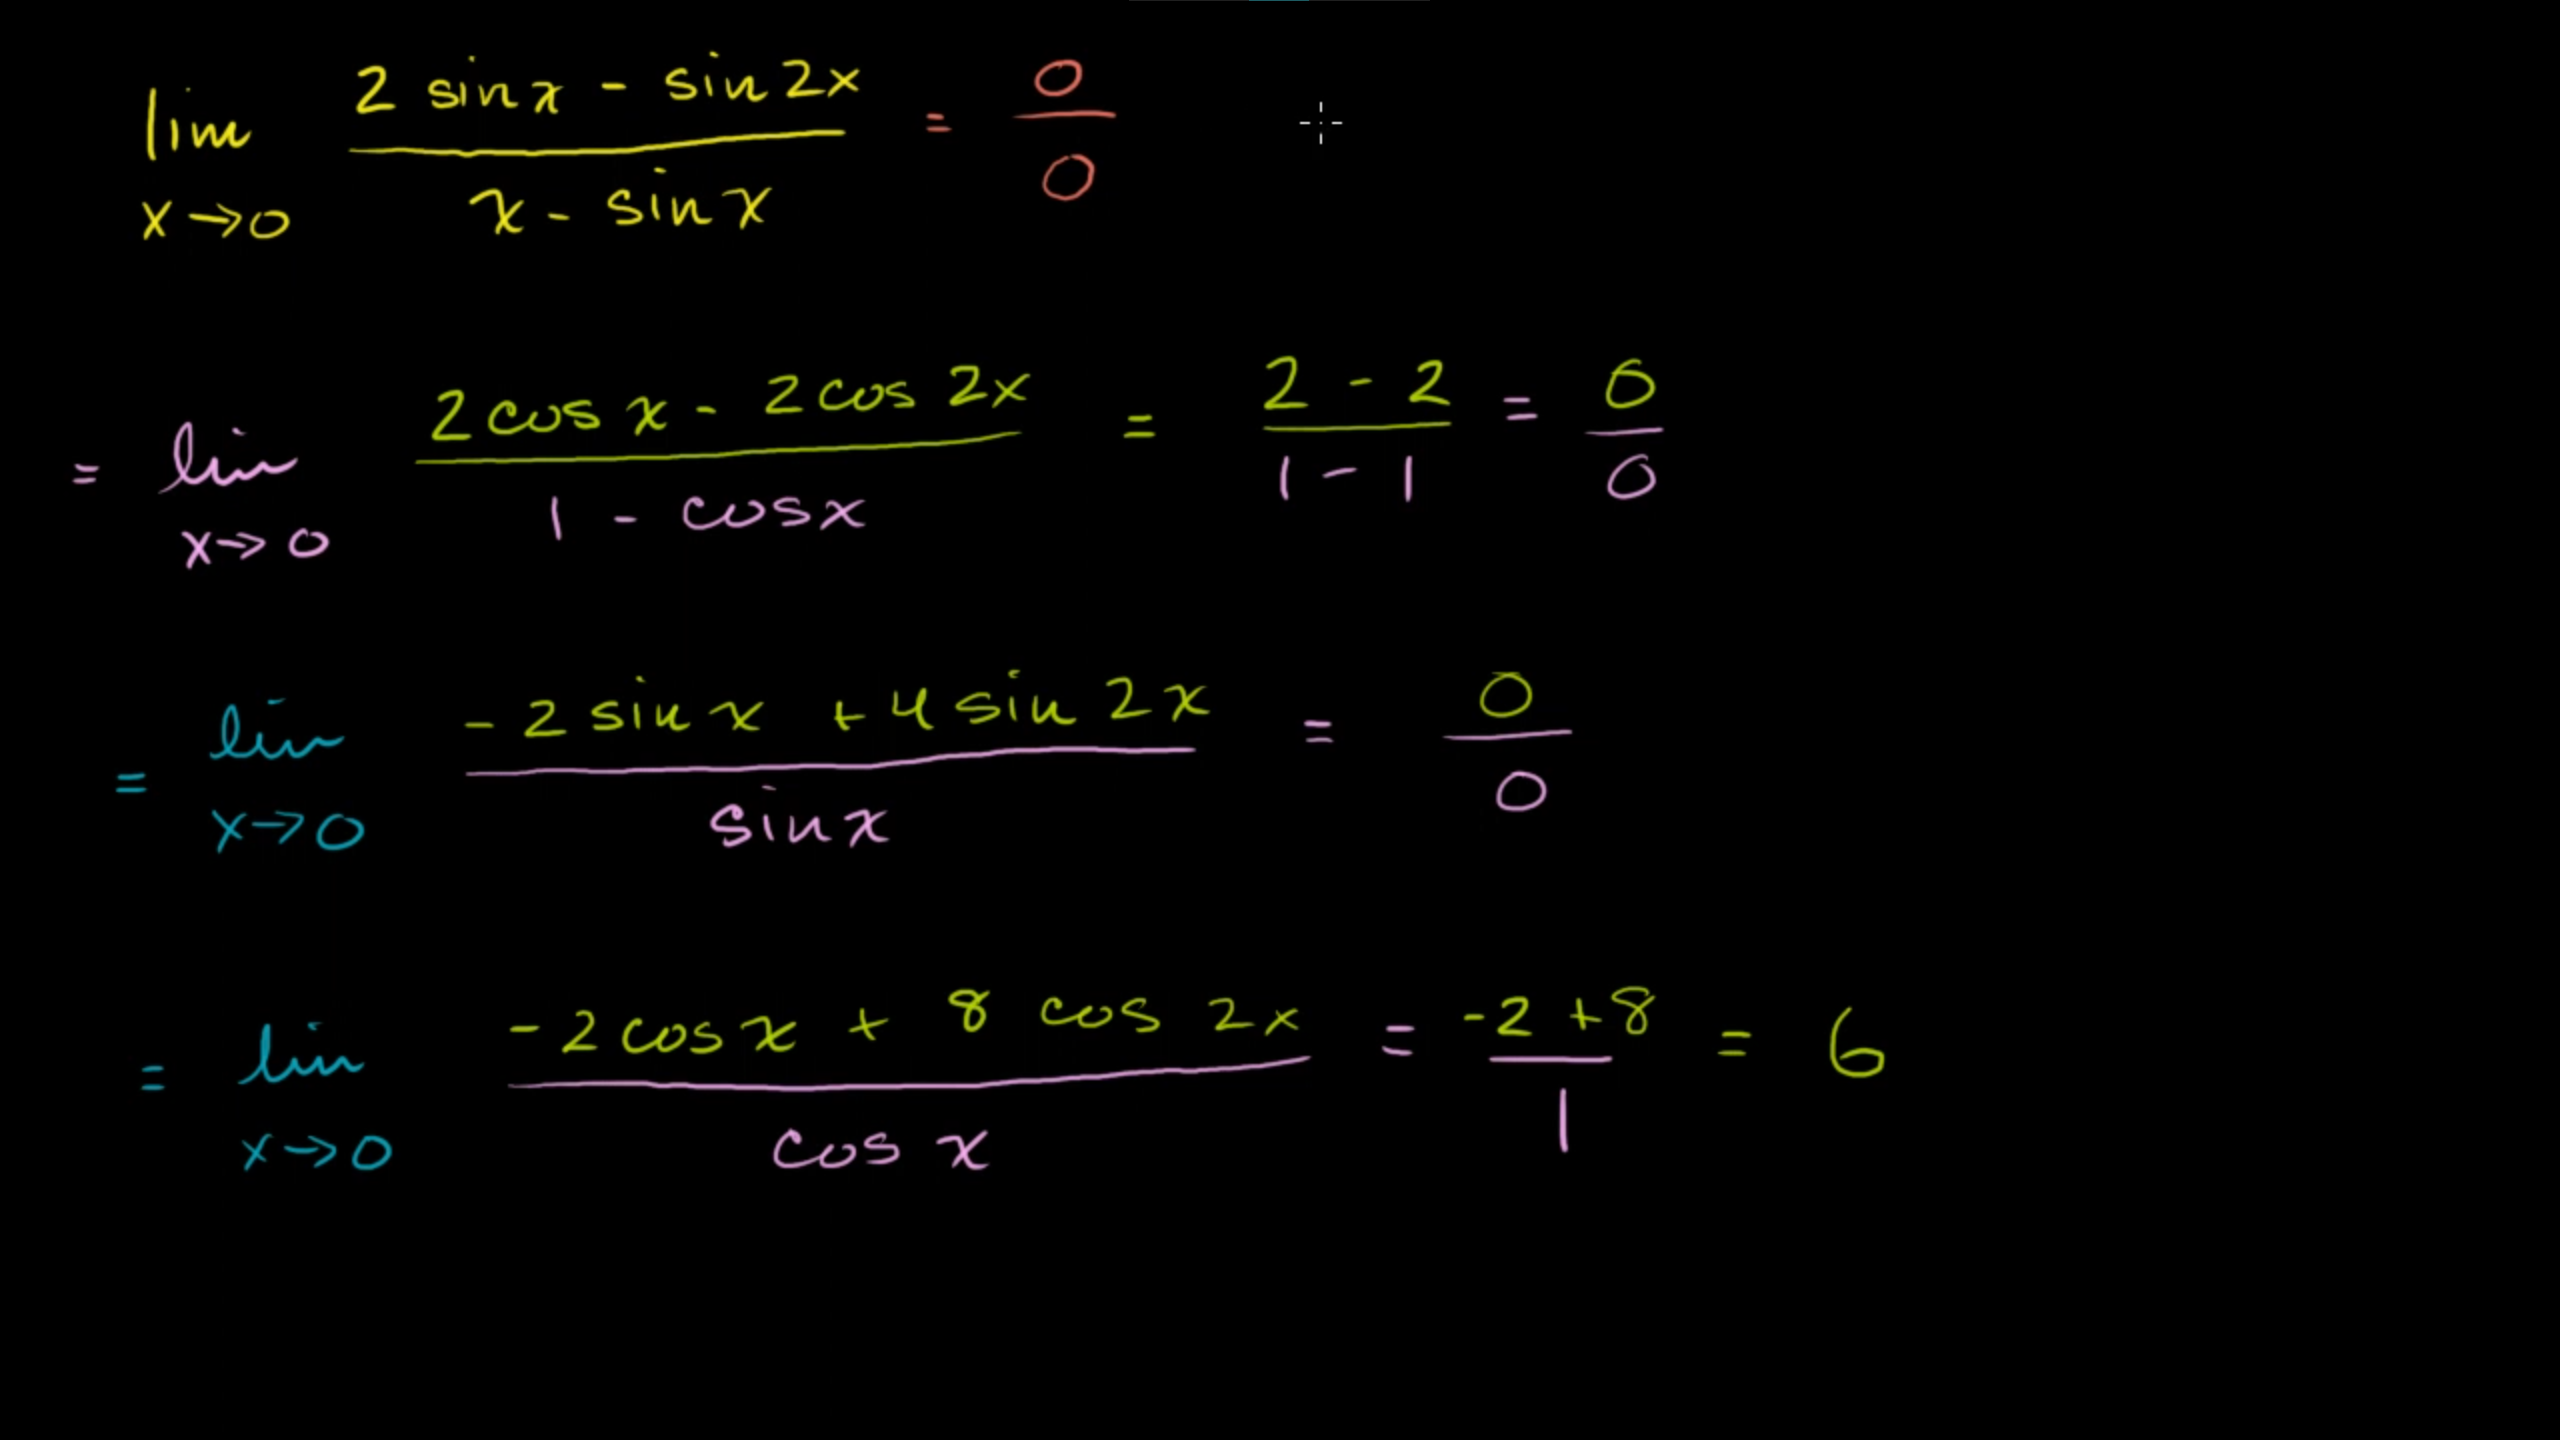 lim x→0 (2 sin x - sin 2x)/(x - sin x) = 0/0
= lim x→0 (2 cos x - 2 cos 2x)/(1 - cos x) = (2 - 2)/(1 - 1) = 0/0
= lim x→0 (-2 sin x + 4 sin 2x)/(sin x) = 0/0
= lim x→0 (-2 cos x + 8 cos 2x)/(cos x) = (-2 + 8)/1 = 6